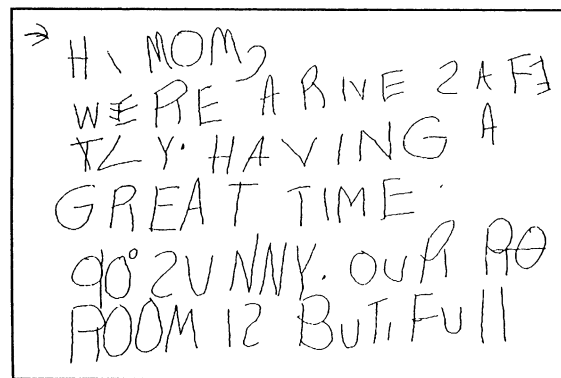 → HI MOM,
WERE ARNE 2AFE
TLY. HAVING A
GREAT TIME.
90° 2UNNY. OUR RO
ROOM I2 BUTIFUll